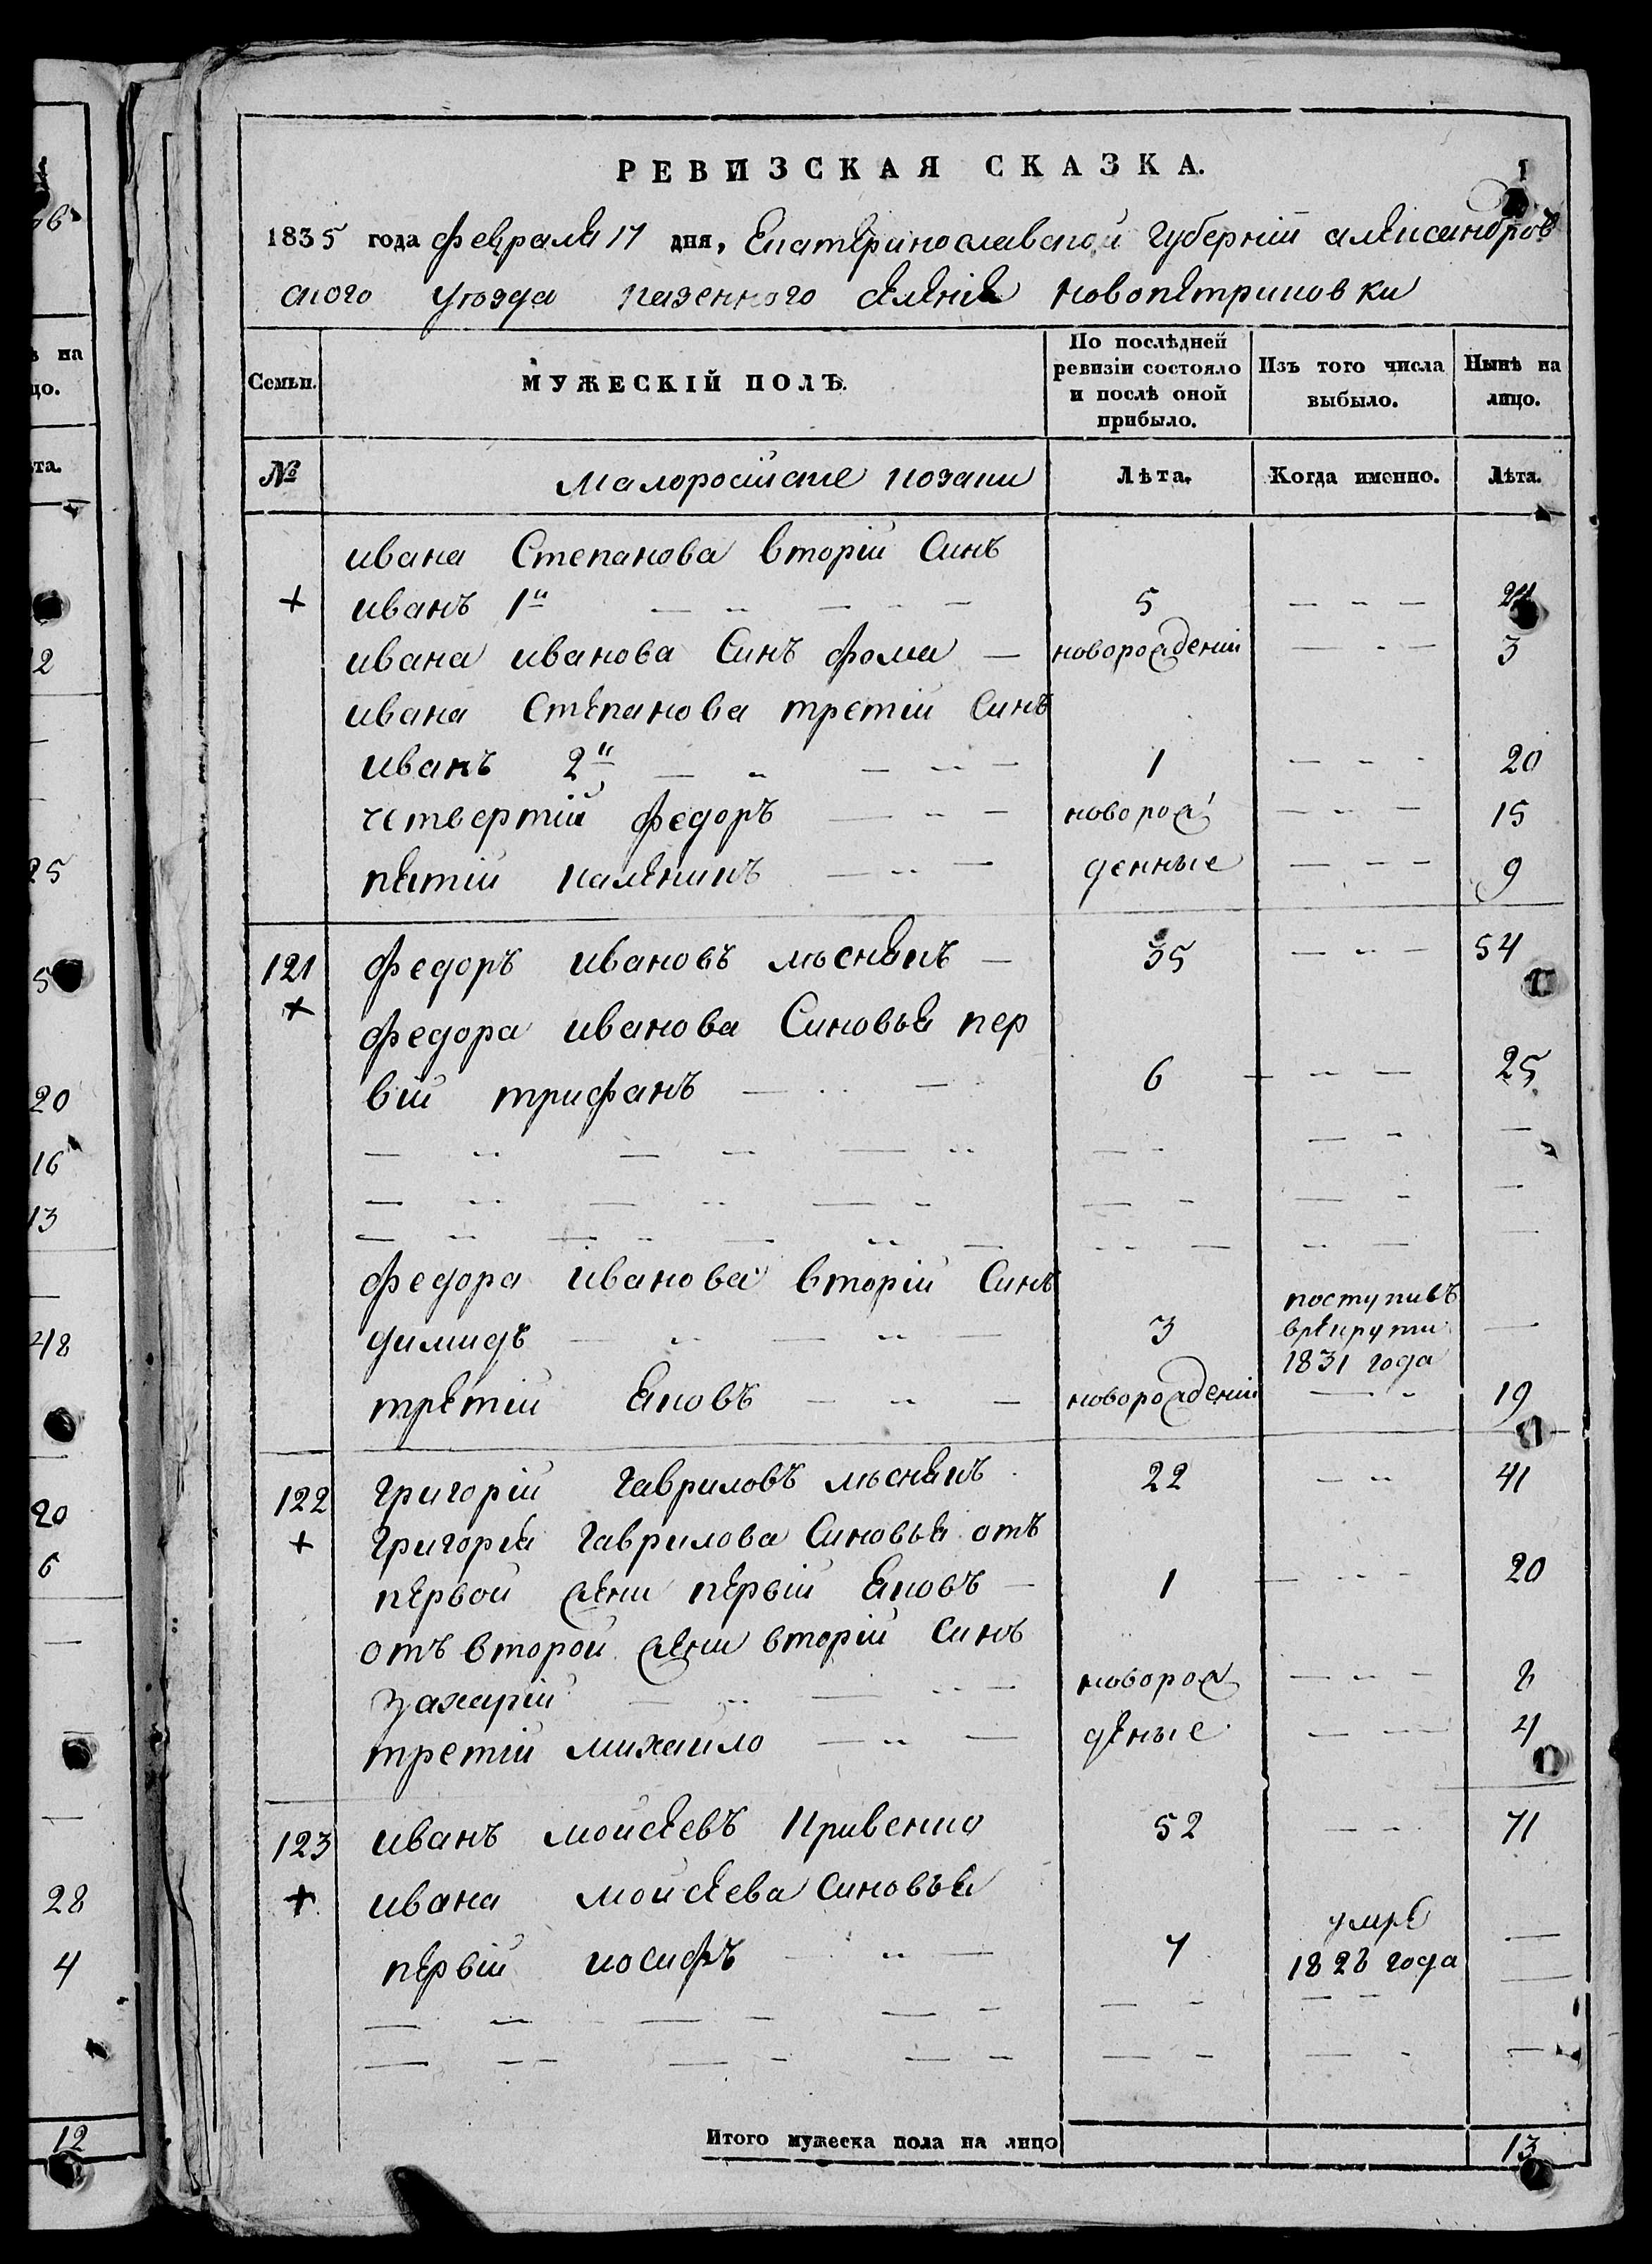 РЕВИЗСКАЯ СКАЗКА.
1835 года февраля 17 дня, Екатеринославской губерніи александров
ского уѣзда казенного селенія новопетриковки
Семьи.
МУЖЕСКІЙ ПОЛЪ.
По послѣдней ревизіи состояло и послѣ оной прибыло.
Изъ того числа выбыло.
Нынѣ на лицо.
№ малоросійские козаки Лѣта. Когда именно. Лѣта.
ивана Степанова вторій Синъ
+ иванъ 1й 5 24
ивана иванова Синъ фома новорожденій 3
ивана Степанова третій Синъ
иванъ 2й 1 20
четвертій федоръ новорож 15
пятій каленикъ денные 9
121 федоръ ивановъ 35 54
+ федора иванова Синовья пер
вій трифанъ 6 25
федора иванова вторій Синъ
димидъ 3 поступивъ
врекрути
1831 года
третій яковъ новорожденій 19
122 григорій гавриловъ 22 41
+ григорія гаврилова Синовья отъ
первой жени первій яковъ 1 20
отъ второй жени вторій Синъ
захарій новорож 8
третій михайло деные 4
123 иванъ моисеевъ Кривенко 52 71
+ ивана моисеева Синовья
первій иосифъ 7 умре
1828 года
Итого мужеска пола на лицо 13
2
25
5
20
16
13
48
20
6
28
4
12